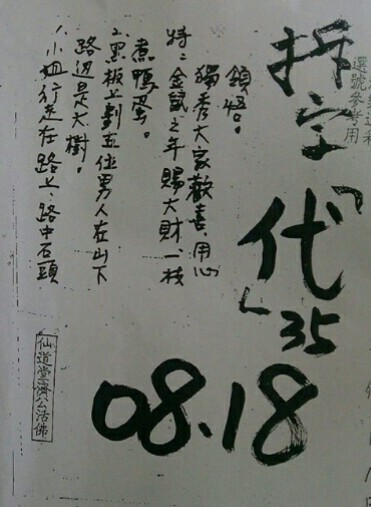 拆字
「代」35
08.18
1.小姐行走在路上、路中石頭
路边是大樹。
2.黑板上劃五位男人在山下
煮鴨蛋。
特：金鼠之年賜大財一枝
獨秀大家歡喜，用心
領悟。
仙道堂濟公活佛
選號參考用